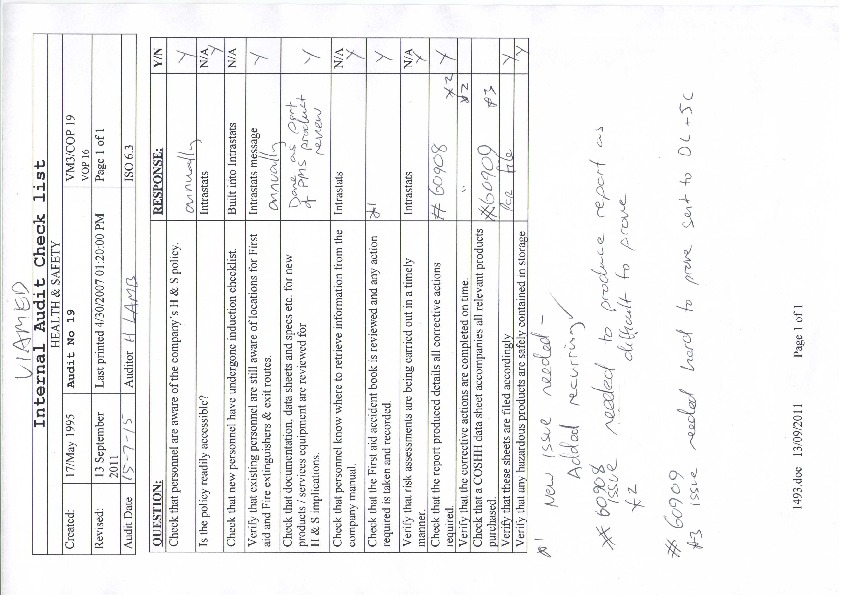 VIAMED
Internal Audit Check list
HEALTH & SAFETY
Created: 17/May 1995 Audit No 19 VM3/COP 19
VOP 16
Revised: 13 September 2011 Last printed 4/30/2007 01:20:00 PM Page 1 of 1
Audit Date 15-7-15 Auditor H LAMB ISO 6.3
QUESTION: RESPONSE: Y/N
Check that personnel are aware of the company's H & S policy. annually Y
Is the policy readily accessible? Intrastats N/A Y
Check that new personnel have undergone induction checklist. Built into Intrastats N/A
Verify that existing personnel are still aware of locations for First Intrastats message Y
aid and Fire extinguishers & exit routes. annually
Check that documentation, data sheets and specs etc. for new Done as part
products / services equipment are reviewed for of PMS product Y
H & S implications. review
Check that personnel know where to retrieve information from the Intrastats N/A Y
company manual.
Check that the First aid accident book is reviewed and any action *1 Y
required is taken and recorded.
Verify that risk assessments are being carried out in a timely Intrastats N/A Y
manner.
Check that the report produced details all corrective actions # 60908 *2 Y
required.
Verify that the corrective actions are completed on time. " *2
Check that a COSHH data sheet accompanies all relevant products #60909 *3
purchased.
Verify that these sheets are filed accordingly Per file Y
Verify that any hazardous products are safely contained in storage Y
*1 New issue needed -
Added recurring
# 60908
issue needed to produce report as
*2 difficult to prove
# 60909
*3 issue needed hard to prove sent to DL + SC
1493.doc 13/09/2011 Page 1 of 1